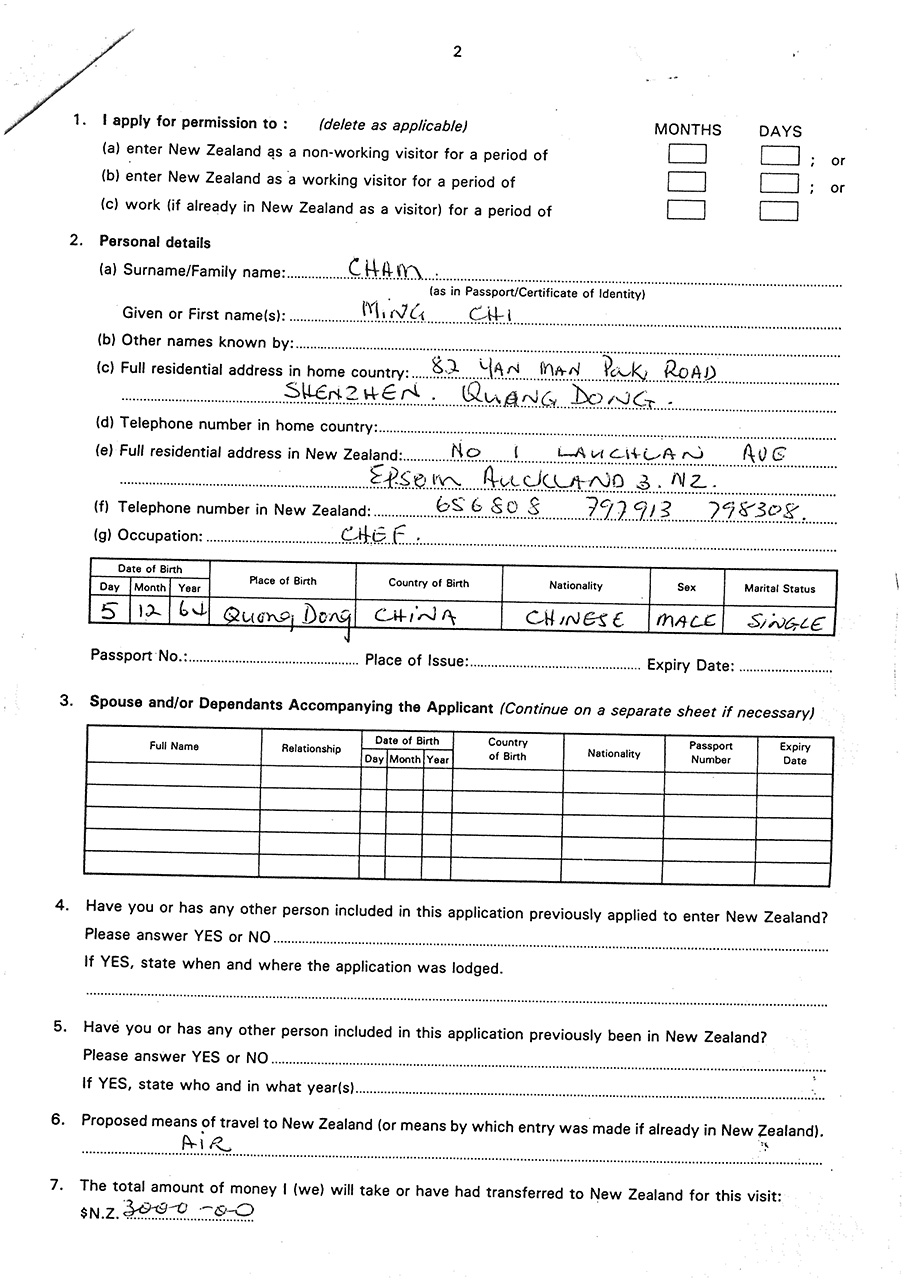 2
1. I apply for permission to : (delete as applicable) MONTHS DAYS
(a) enter New Zealand as a non-working visitor for a period of ; or
(b) enter New Zealand as a working visitor for a period of ; or
(c) work (if already in New Zealand as a visitor) for a period of
2. Personal details
(a) Surname/Family name: CHAM
(as in Passport/Certificate of Identity)
Given or First name(s): MiNG CHI
(b) Other names known by:
(c) Full residential address in home country: 82 YAN MAN Park ROAD
SHENZHEN. QUANG DONG.
(d) Telephone number in home country:
(e) Full residential address in New Zealand: NO 1 LAUCHLAN AVE
EPSOM AUCKLAND 3. NZ.
(f) Telephone number in New Zealand: 656808 797913 798308.
(g) Occupation: CHEF.
Date of Birth Place of Birth Country of Birth Nationality Sex Marital Status
Day Month Year
5 12 64 Quang Dong CHINA CHINESE MALE SINGLE
Passport No.: Place of Issue: Expiry Date:
3. Spouse and/or Dependants Accompanying the Applicant (Continue on a separate sheet if necessary)
Full Name Relationship Date of Birth Country of Birth Nationality Passport Number Expiry Date
Day Month Year
4. Have you or has any other person included in this application previously applied to enter New Zealand?
Please answer YES or NO
If YES, state when and where the application was lodged.
5. Have you or has any other person included in this application previously been in New Zealand?
Please answer YES or NO
If YES, state who and in what year(s)
6. Proposed means of travel to New Zealand (or means by which entry was made if already in New Zealand).
AiR
7. The total amount of money I (we) will take or have had transferred to New Zealand for this visit:
$N.Z. 3000-00